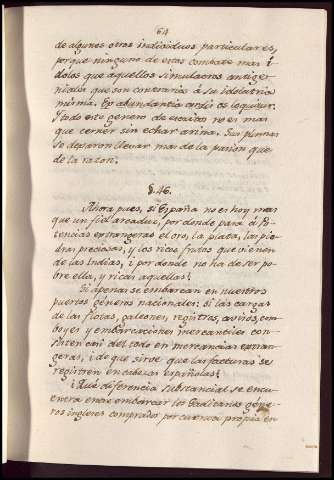 64
de algunos otros individuos particulares,
porque ninguno de estos combate mas i-
dolos que aquellos simulacros
que son contrarios á su idolatria
misma. Ex abundantia cordis os loquitur.
Y todo este genero de escritos no es mas
que cerner sin echar arina. Sus plumas
se dejaron llevar mas de la pasion que
de la razon.
§. 46.
Ahora pues, si España no es hoy mas
que un fiel arcaduz, por donde para á Po-
tencias extrangeras el oro, la plata, las pie-
dras preciosas, y los ricos frutos que vienen
de las Indias, ¿por donde no ha de ser po-
bre ella, y ricas aquellas?
Si apenas se embarcan en nuestros
puertos géneros nacionales: si las cargas
de las flotas, galeones, registros, avisos, com-
boyes y embarcaciones mercantiles con-
sisten casi del todo en mercancias extran-
geras, ¿de que sirve que las facturas se
registren en cabezas españolas?
¿Que diferencia substancial se encu-
entra entre embarcar los Gaditanos géne-
ros ingleses comprados por cuenta propia en